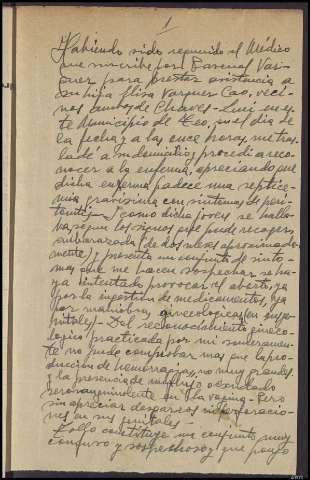 1
Habiendo sido requerido el Médico
que suscribe por Pascual Vaz-
quez para prestar asistencia a
su hija Elisa Vazquez Cao, veci-
nos ambos de Chaves - Luou en es-
te Municipio de Teo, en el día de
la fecha y a las once horas me tras-
ladé a su domicilio, y procedí a reco-
nocer a la enferma, apreciando que
dicha enferma padece una septice-
mia gravisima con sintomas de peri-
tonitis. Y como dicha joven se halla-
ba segun los signos que pude recoger,
embarazada (de dos meses aproximada-
mente) y presenta un conjunto de sinto-
mas que me hacen sospechar se ha-
ya intentado provocar el aborto, ya
por la ingestion de medicamentos, ya
por maniobras ginecologicas en sus ge-
nitales - Del reconocimiento gineco-
logico practicado por mi someramen-
te no pude comprobar mas que la pro-
duccion de hemorragias, no muy grandes
y la presencia de un flujo o exudado
serosanguinolento en la vagina. Pero
sin apreciar desgarros ni perforacio-
nes en sus genitales.
Todo ello constituye un conjunto muy
confuso y sospechoso, que pongo